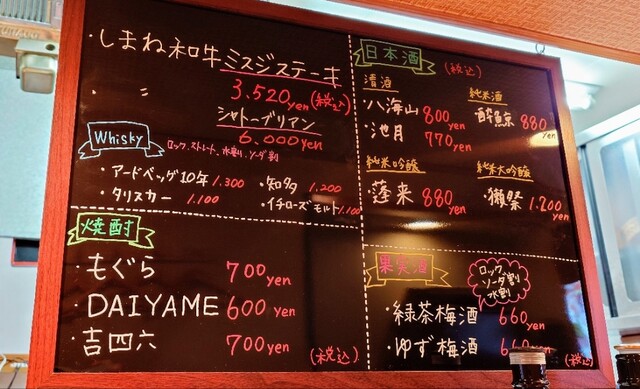 ・しまね和牛ミスジステーキ
3.520yen(税込)
・ 〃 シャトーブリアン
6.000yen
Whisky
ロック、ストレート、水割、ソーダ割
・アードベッグ10年 1.300
・タリスカー 1.100
・知多 1.200
・イチローズモルト 1.100
焼酎
・もぐら 700yen
・DAIYAME 600yen
・吉四六 700yen
(税込)
日本酒 (税込)
清酒
・八海山 800yen
・池月 770yen
純米酒
酔鯨 880yen
純米吟醸
蓬来 880yen
純米大吟醸
・獺祭 1.200yen
果実酒
ロック
ソーダ割
水割
・緑茶梅酒 660yen
・ゆず梅酒 660yen
(税込)